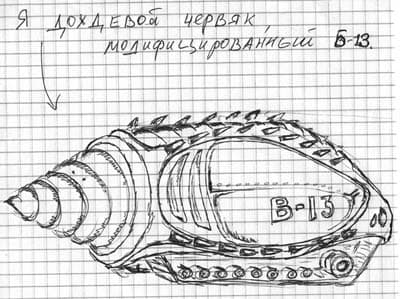 Я ДОЖДЕВОЙ ЧЕРВЯК,
МОДИФИЦИРОВАННЫЙ Б-13.
В-13